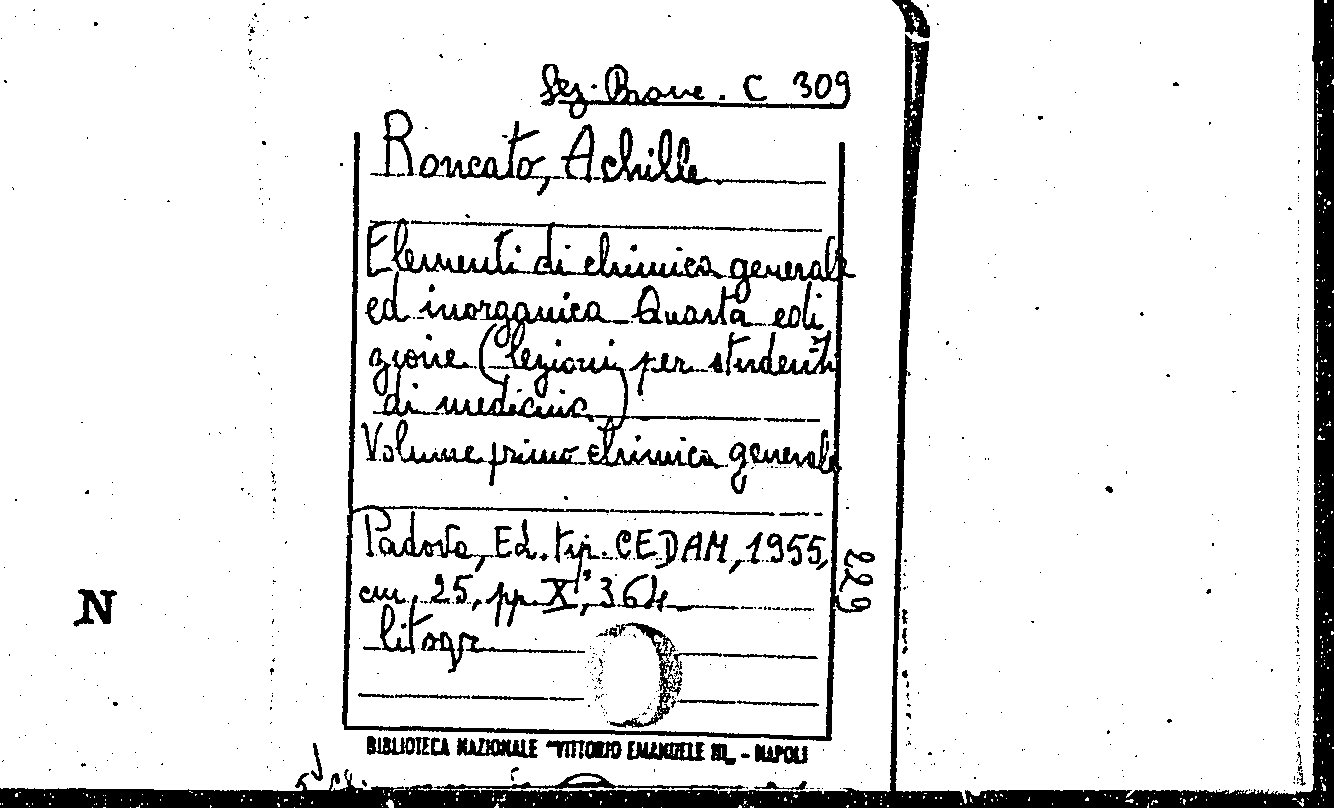 Sez. Brave. C 309
Roncato, Achille
Elementi di chimica generale
ed inorganica Quarta edi
zione (lezioni per studenti
di medicina)
Volume primo chimica generale
Padova, Ed. tip. CEDAM, 1955,
cm. 25, pp. X, 364
litogr.
229
N
BIBLIOTECA NAZIONALE "VITTORIO EMANUELE III„ - NAPOLI